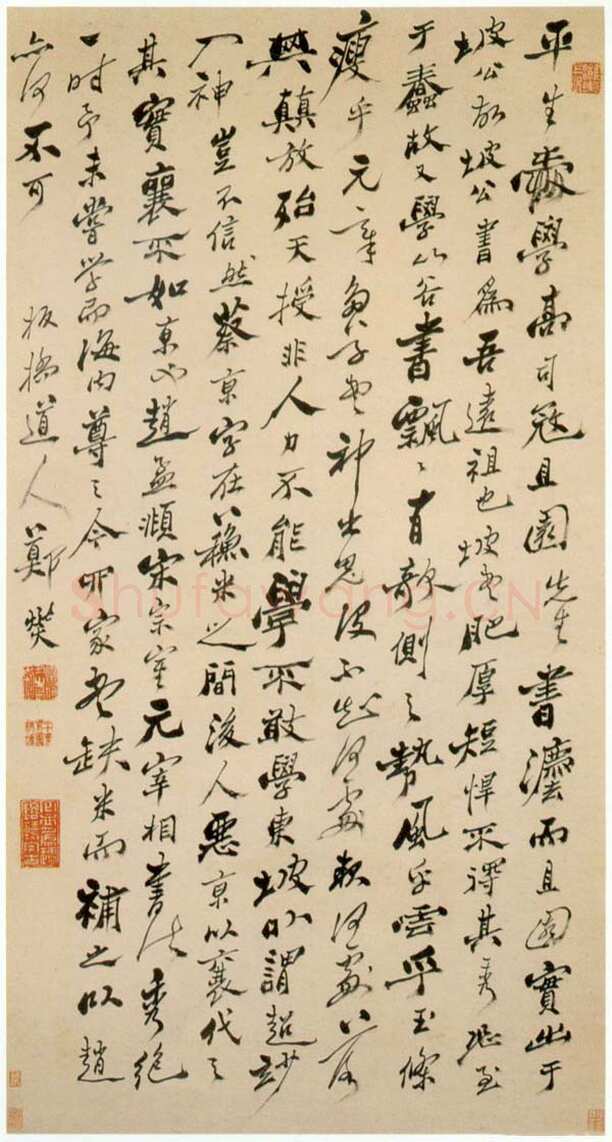 平生愛學高司寇且園先生書灋而且園實出于
坡公故坡公書為吾遠祖也坡書肥厚短悍不得其秀恐至
于蠢故又學山谷書飄〻有欹側之勢風乎雲乎玉條
瘦乎元章書神出鬼沒不知何處起何處落
其顛放殆天授非人力不能學不敢學東坡以謂超妙
入神豈不信然蔡京字在蘇米之間後人惡京以襄代之
其實襄不如京也趙孟頫宋宗室元宰相書法秀絕
一時予未嘗學而海內尊之今四家書缺米而補之以趙
亦何不可
板橋道人鄭燮
Shufawang.CN